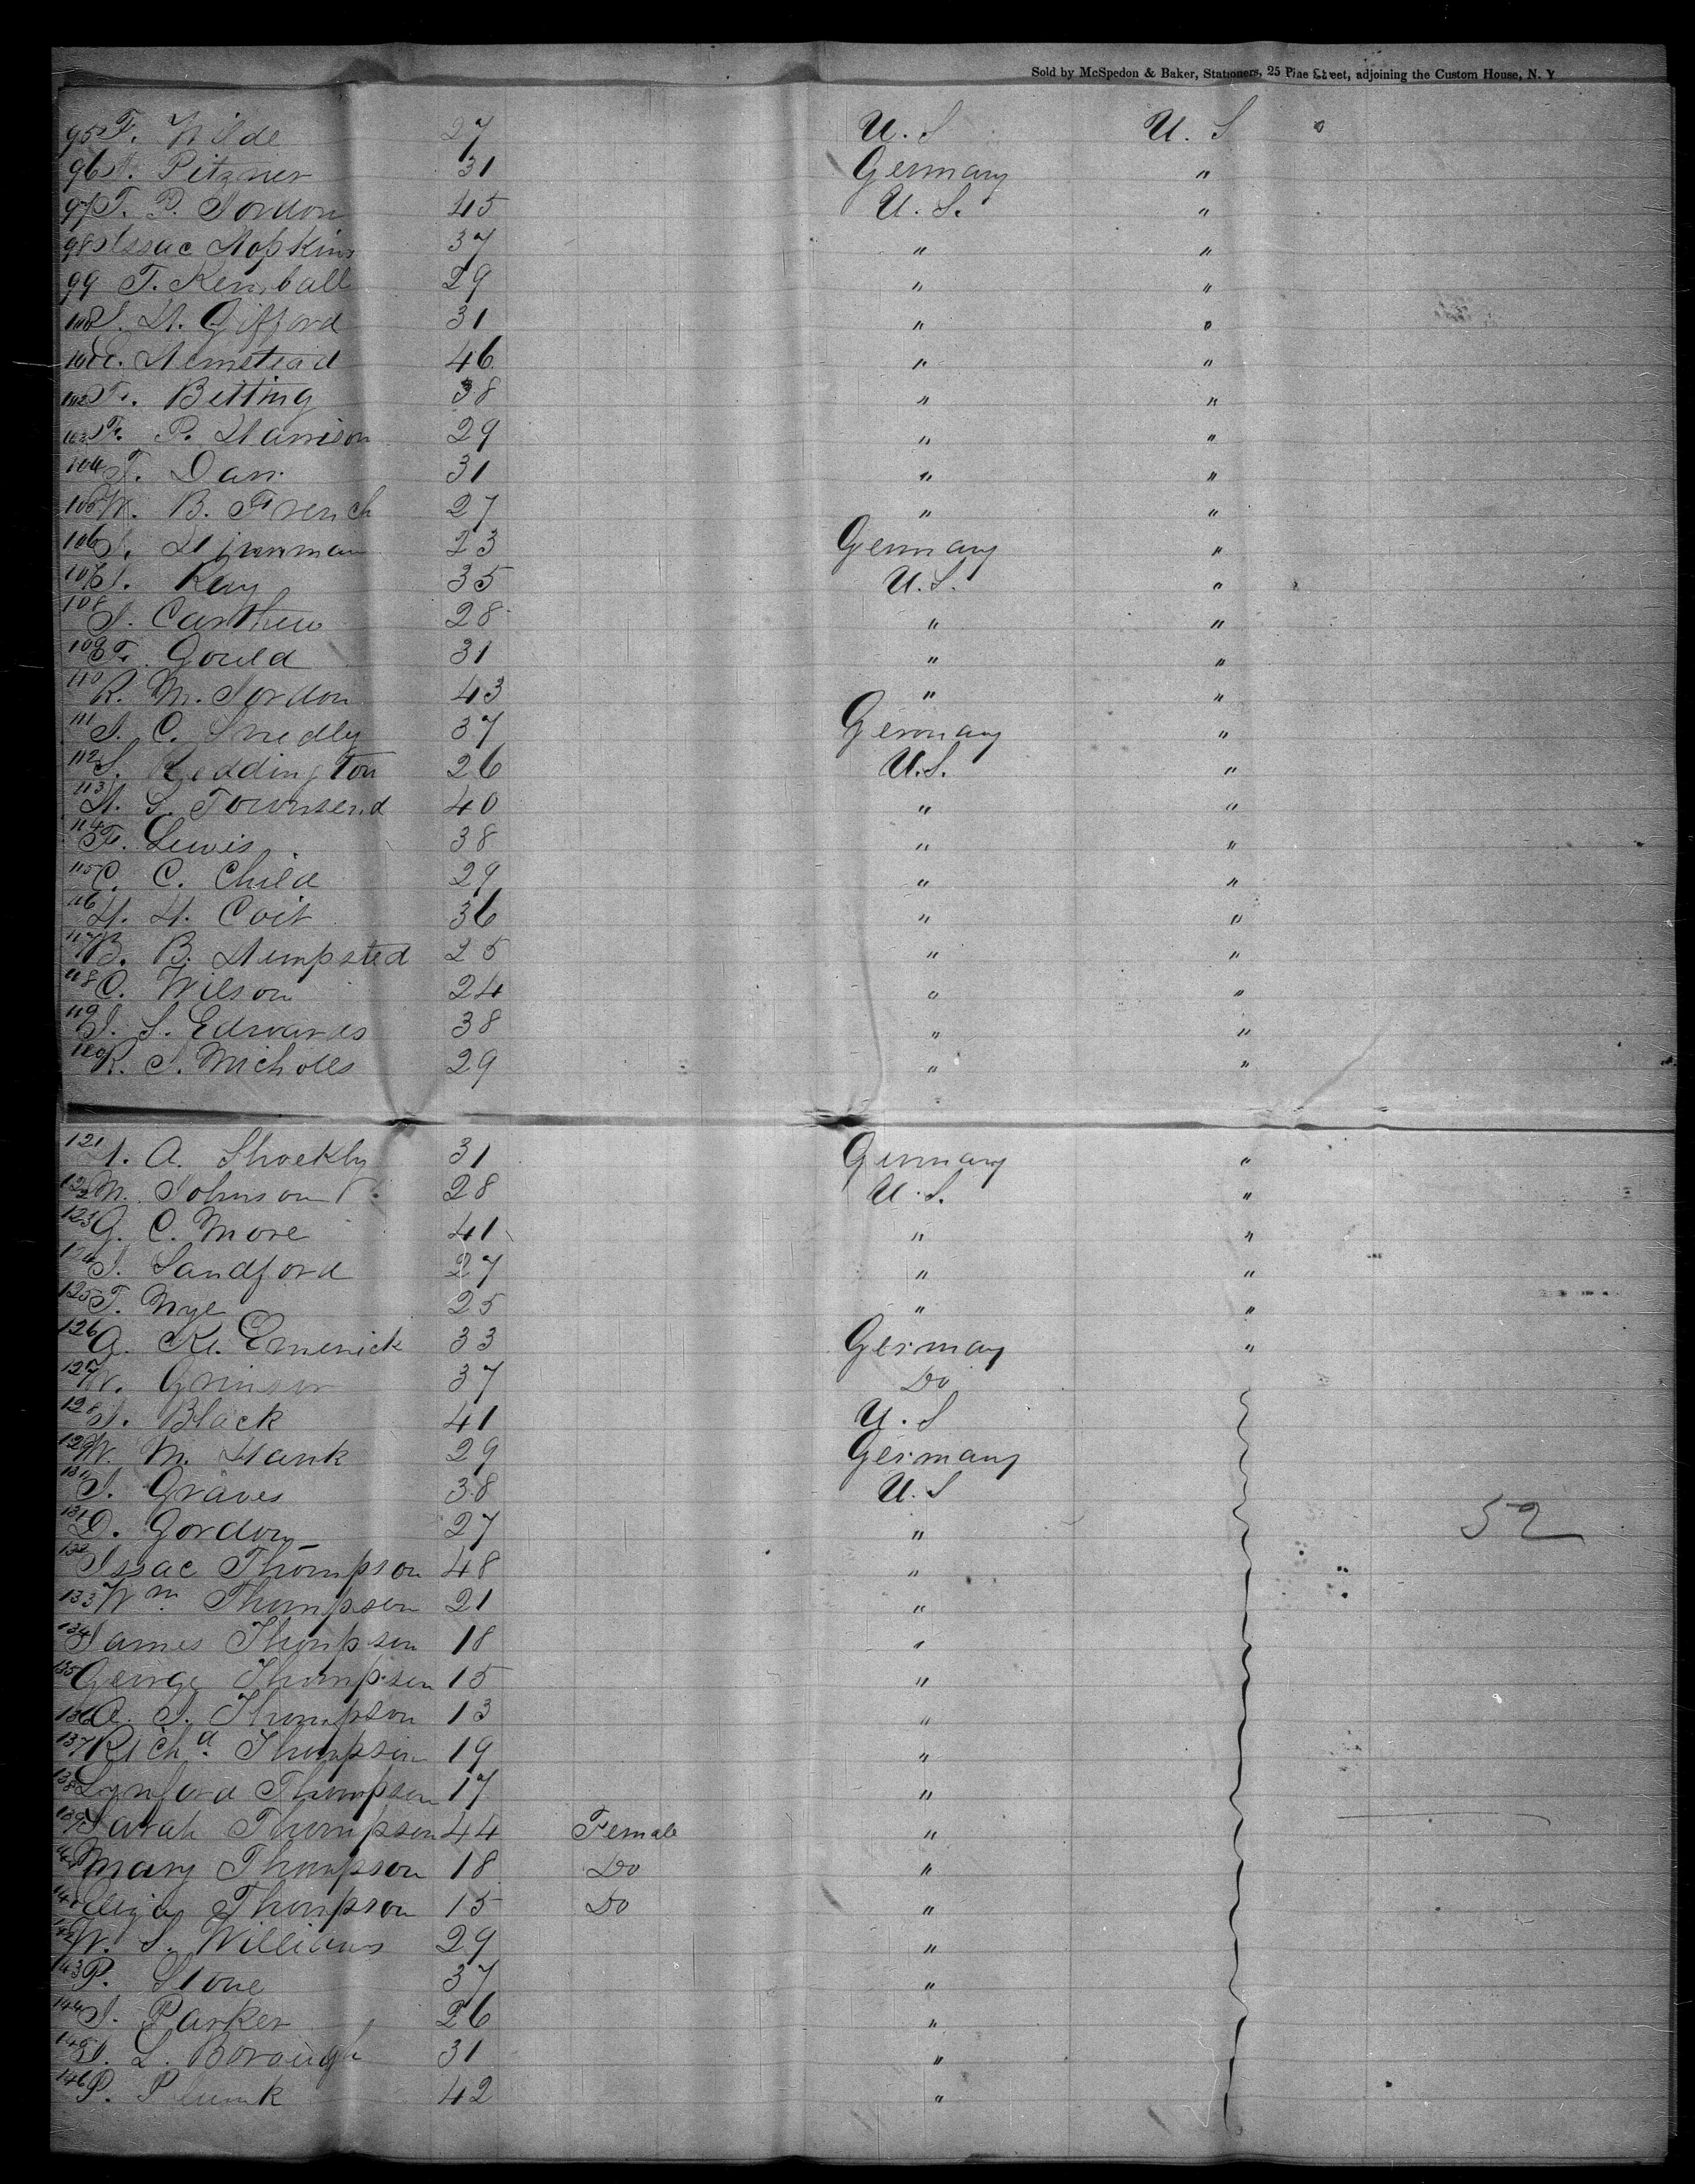 Sold by McSpedon & Baker, Stationers, 25 Pine Street, adjoining the Custom House, N. Y
95 F. Wilde 27 U. S U. S
96 Pitzner 31 Germany "
97 T. P. Jordon 45 U. S. "
98 Issac Hopkins 37 " "
99 T. Kemball 29 " "
100 S. H. Gifford 31 " "
101 E. Hemstead 46 " "
102 F. Betting 38 " "
103 F. P. Harrison 29 " "
104 T. Dan 31 " "
105 W. B. French 27 " "
106 J. 23 Germany "
107 Ray 35 U. S. "
108 S. Carthew 28 " "
109 F. Gould 31 " "
110 R. M. Jordon 43 " "
111 S. C. Smedly 37 Germany "
112 S. Reddington 26 U. S. "
113 H. S. Townsend 40 " "
114 F. Lewis 38 " "
115 C. C. Child 29 " "
116 H. H. Coit 36 " "
117 B. B. Hempsted 25 " "
118 C. Wilson 24 " "
119 J. S. Edwards 38 " "
120 R. S. Nicholls 29 " "
121 A. Shockly 31 Germany "
122 M. Johnson 28 U. S. "
123 G. C. More 41 " "
124 S. Sandford 27 " "
125 T. Nye 25 " "
126 G. K. Emerick 33 Germany "
127 W. Grinson 37 Do
128 J. Black 41 U. S
129 W. M. Hank 29 Germany
130 S. Graves 38 U. S
131 D. Gordon 27 " 52
132 Issac Thompson 48 "
133 Wm. Thompson 21 "
134 James Thompson 18 "
135 George Thompson 15 "
136 A. S. Thompson 13 "
137 Richd. Thompson 19 "
138 Lynford Thompson 17 "
139 Sarah Thompson 44 Female "
140 Mary Thompson 18 Do "
141 Eliza Thompson 15 Do "
142 W. S. Williams 29 "
143 P. Stone 37 "
144 S. Parker 26 "
145 L. Borough 31 "
146 P. Plunk 42 "